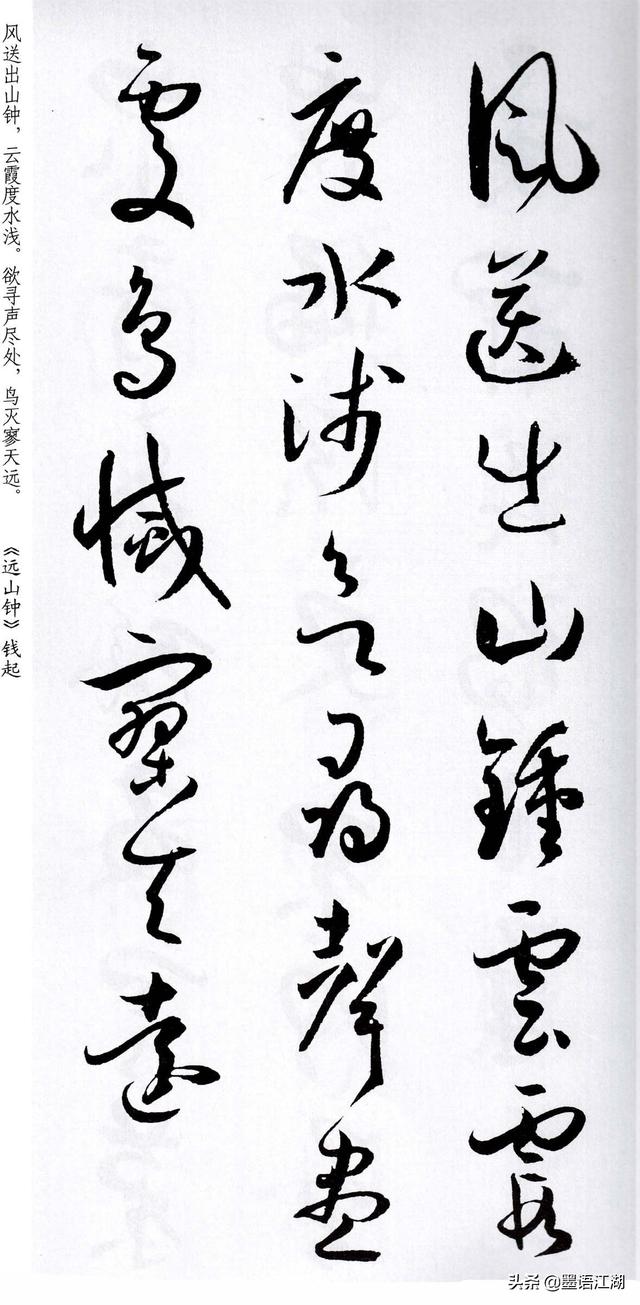 風送出山鍾雲霞
度水浅欲尋聲盡
處鳥滅寥天遠
风送出山钟，云霞度水浅。欲寻声尽处，鸟灭寥天远。
《远山钟》钱起
头条 @墨语江湖